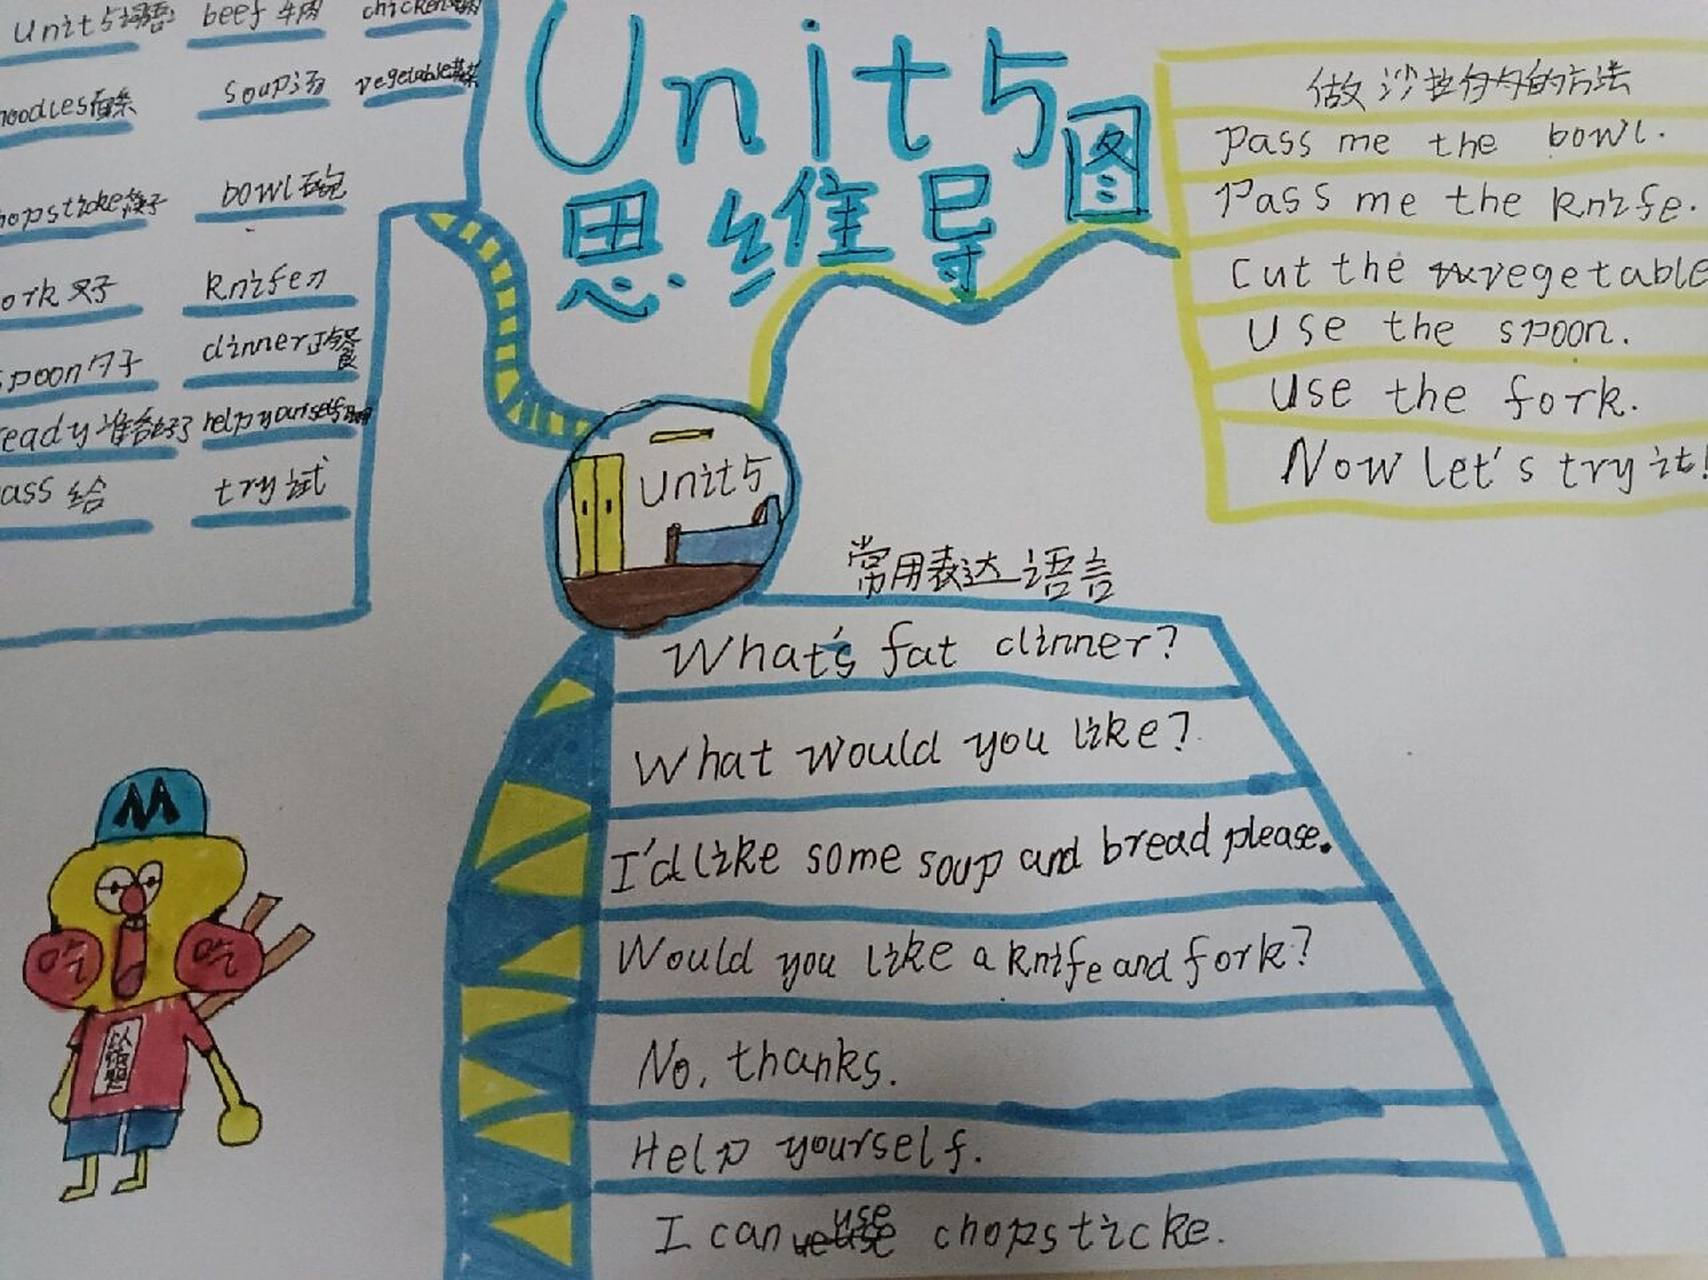 Unit5
思维导图
Unit5词语 beef 牛肉 chicken
noodles面条 soup汤 vegetable蔬菜
hopsticke筷子 bowl
ork 叉子 knife刀
spoon勺子 dinner正餐
eady 准备好了 help yourself
ass 给 try 试
做沙拉的方法
Pass me the bowl.
Pass me the knife.
Cut the vegetable
Use the spoon.
Use the fork.
Now let's try it!
Unit5
常用表达语言
What's fat dinner?
What would you like?
I'd like some soup and bread please.
Would you like a knife and fork?
No, thanks.
Help yourself.
I can use chopsticke.
M
吃 吃